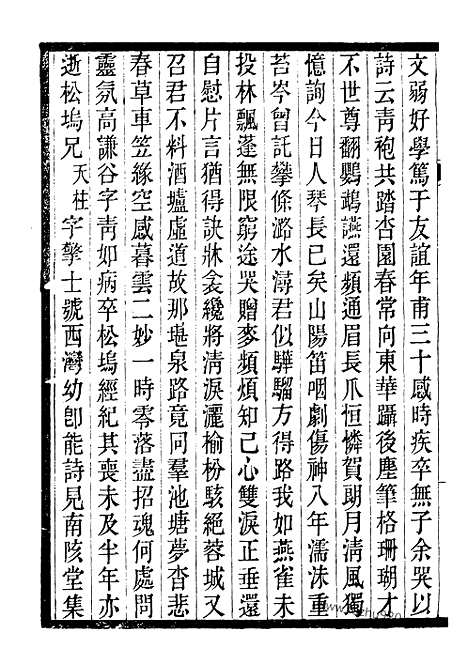 文弱好學篤于友誼年甫三十感時疾卒無子余哭以
詩云青袍共踏杏園春常向東華躡後塵筆格珊瑚才
不世尊翻鸚鵡讌還頻通眉長爪恒憐賀朗月清風獨
憶詢今日人琴長已矣山陽笛咽劇傷神八年濡沫重
苔岑曾託攀條潞水潯君似驊騮方得路我如燕雀未
投林飄蓬無限窮途哭贈麥頻煩知己心雙淚正垂還
自慰片言猶得訣牀衾纔將清淚灑榆枌駭絕蓉城又
召君不料酒壚虛道故那堪泉路竟同羣池塘夢杳悲
春草車笠緣空感暮雲二妙一時零落盡招魂何處問
靈氛高謙谷字靑如病卒松塢經紀其喪未及半年亦
逝松塢兄天柱字擎士號西灣幼卽能詩見南陔堂集